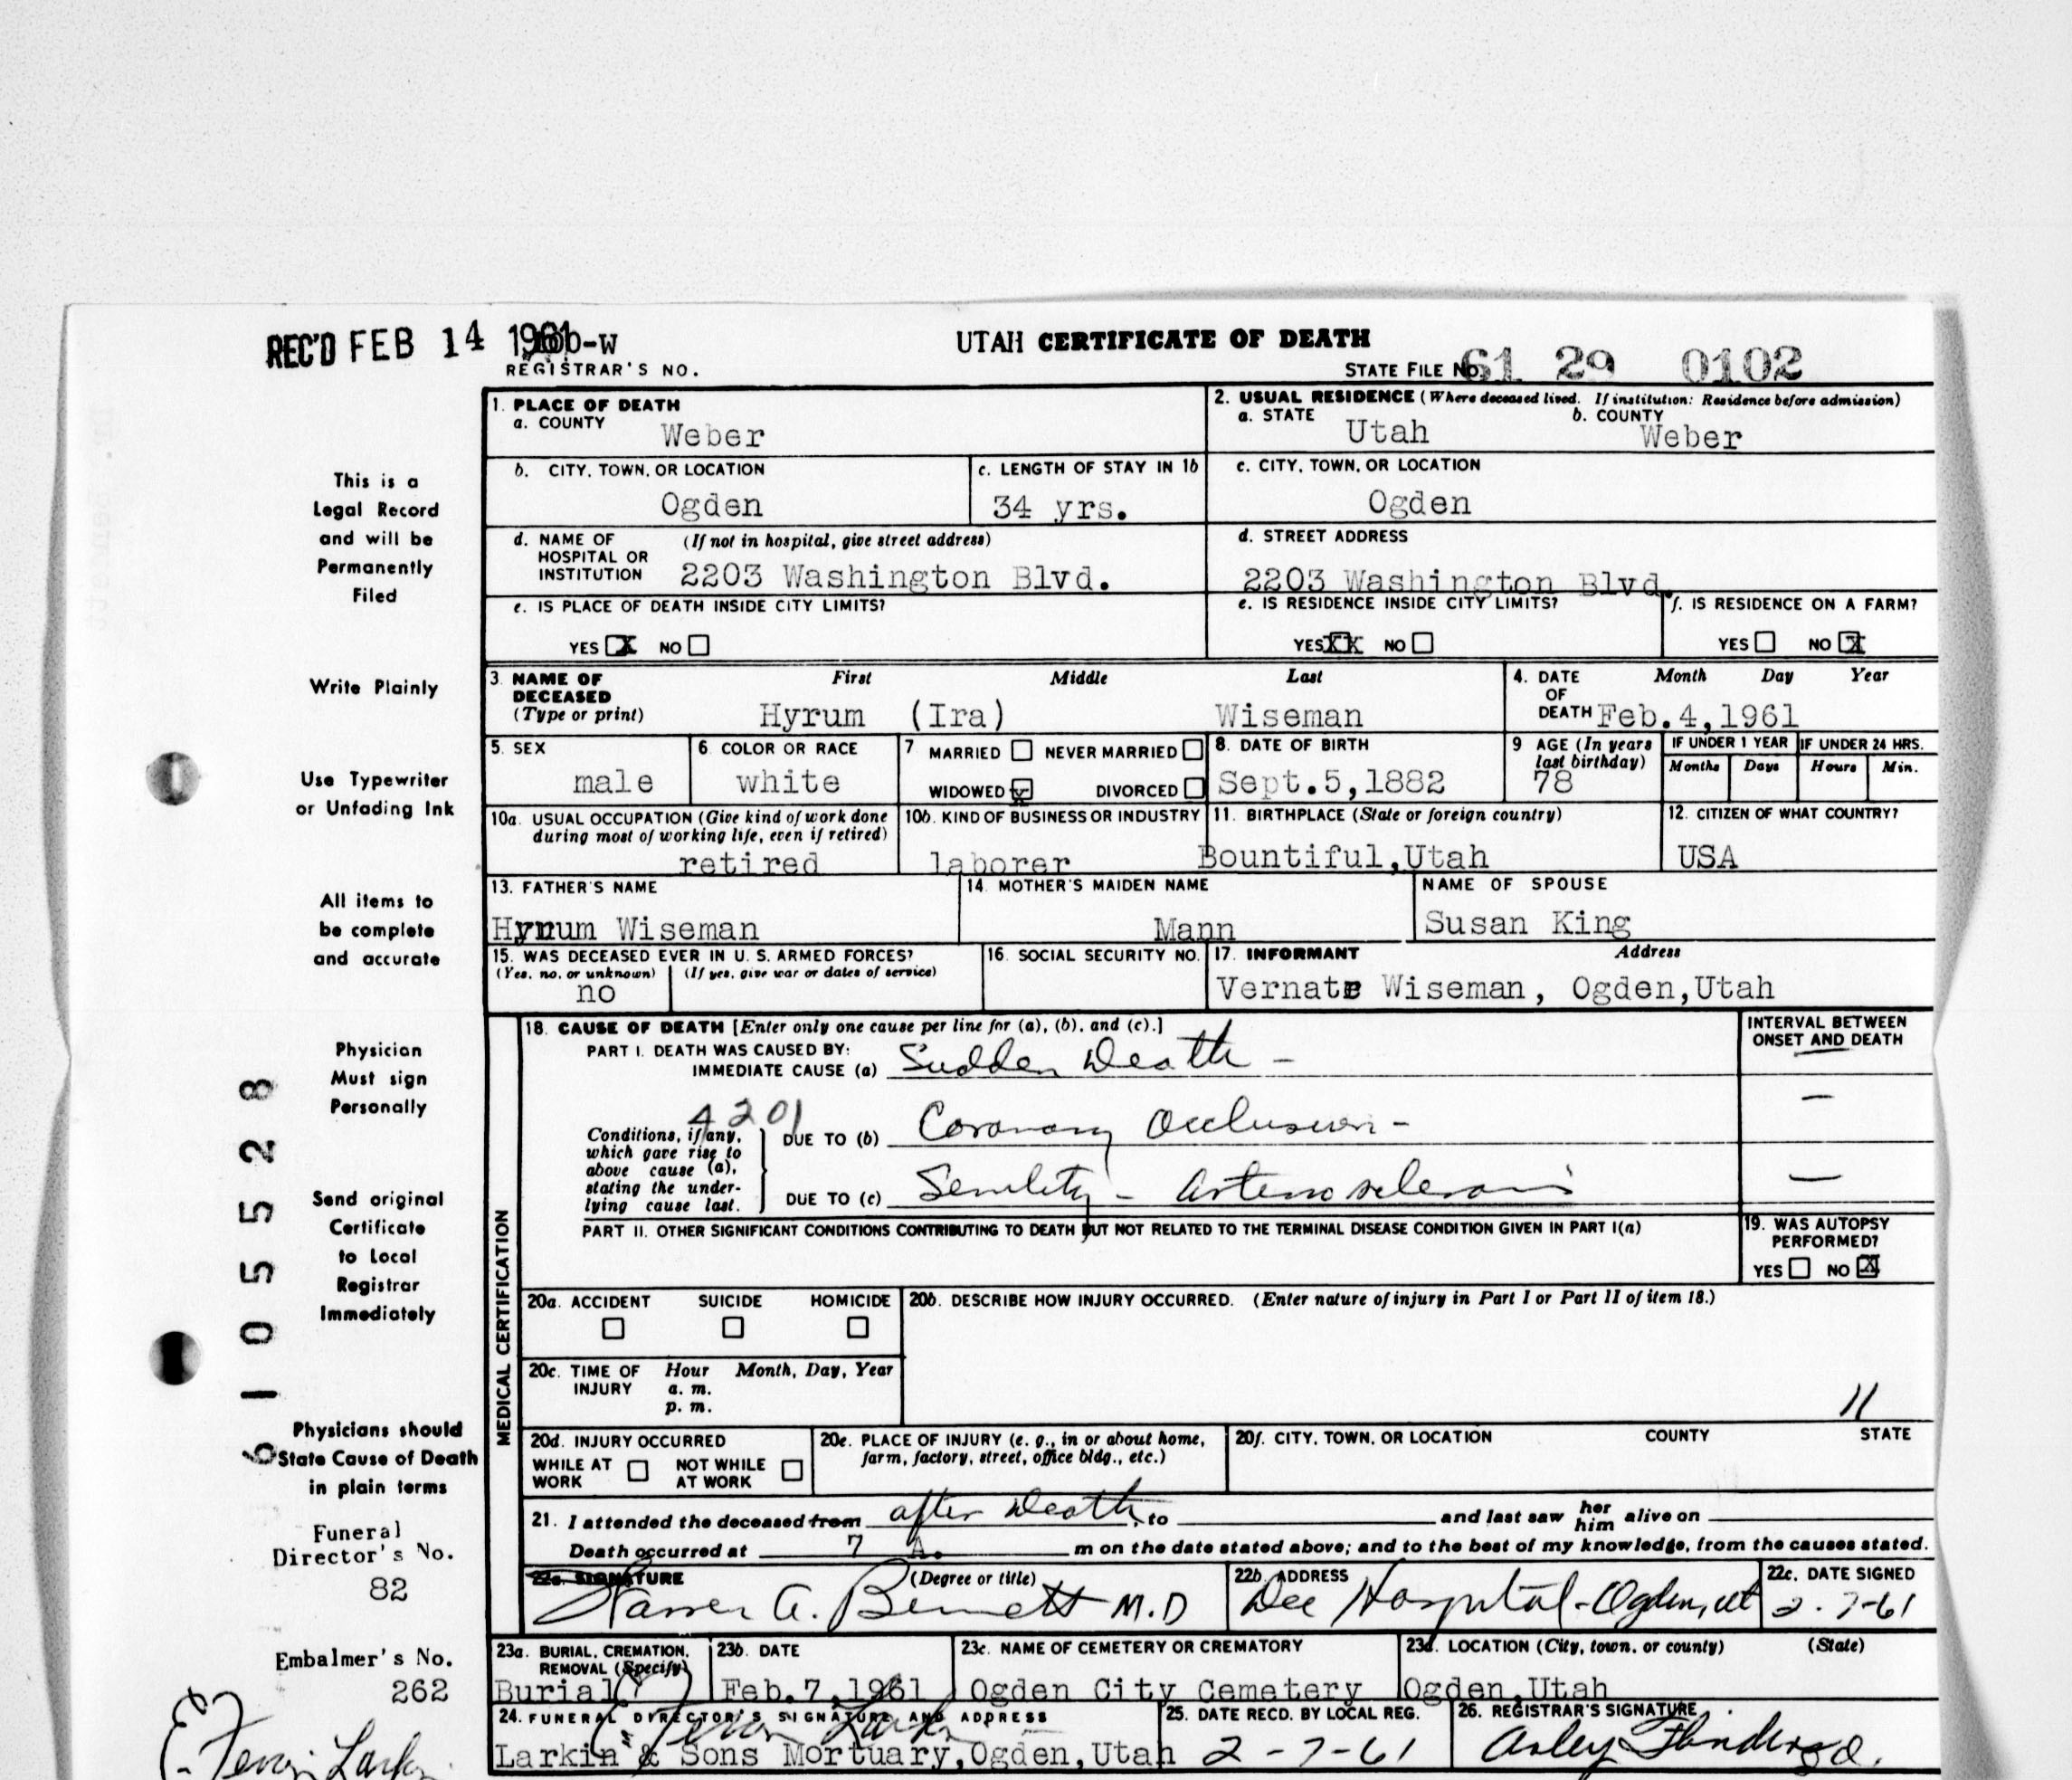 REC'D FEB 14 1961
UTAH CERTIFICATE OF DEATH
REGISTRAR'S NO.
STATE FILE No. 61 29 0102
1. PLACE OF DEATH
a. COUNTY
Weber
2. USUAL RESIDENCE (Where deceased lived. If institution: Residence before admission)
a. STATE b. COUNTY
Utah Weber
b. CITY, TOWN, OR LOCATION
Ogden
c. LENGTH OF STAY IN 1b
34 yrs.
c. CITY, TOWN, OR LOCATION
Ogden
d. NAME OF (If not in hospital, give street address)
HOSPITAL OR
INSTITUTION 2203 Washington Blvd.
d. STREET ADDRESS
2203 Washington Blvd.
e. IS PLACE OF DEATH INSIDE CITY LIMITS?
YES X NO
e. IS RESIDENCE INSIDE CITY LIMITS?
YES XX NO
f. IS RESIDENCE ON A FARM?
YES NO X
3. NAME OF First Middle Last
DECEASED
(Type or print) Hyrum (Ira) Wiseman
4. DATE Month Day Year
OF
DEATH Feb.4,1961
5. SEX
male
6. COLOR OR RACE
white
7 MARRIED NEVER MARRIED
WIDOWED X DIVORCED
8. DATE OF BIRTH
Sept.5,1882
9 AGE (In years
last birthday)
78
IF UNDER 1 YEAR IF UNDER 24 HRS.
Months Days Hours Min.
10a. USUAL OCCUPATION (Give kind of work done
during most of working life, even if retired)
retired
10b. KIND OF BUSINESS OR INDUSTRY
laborer
11. BIRTHPLACE (State or foreign country)
Bountiful,Utah
12. CITIZEN OF WHAT COUNTRY?
USA
13. FATHER'S NAME
Hyrum Wiseman
14. MOTHER'S MAIDEN NAME
Mann
NAME OF SPOUSE
Susan King
15. WAS DECEASED EVER IN U. S. ARMED FORCES?
(Yes, no, or unknown) (If yes, give war or dates of service)
no
16. SOCIAL SECURITY NO.
17. INFORMANT Address
Wiseman, Ogden,Utah
MEDICAL CERTIFICATION
18. CAUSE OF DEATH [Enter only one cause per line for (a), (b), and (c).]
INTERVAL BETWEEN
ONSET AND DEATH
PART I. DEATH WAS CAUSED BY:
IMMEDIATE CAUSE (a) Sudden Death -
4201
Conditions, if any,
which gave rise to
above cause (a),
stating the under-
lying cause last.
DUE TO (b) Coronary Occlusion - —
DUE TO (c) Senility - Arteriosclerosis —
PART II. OTHER SIGNIFICANT CONDITIONS CONTRIBUTING TO DEATH BUT NOT RELATED TO THE TERMINAL DISEASE CONDITION GIVEN IN PART I(a)
19. WAS AUTOPSY
PERFORMED?
YES NO X
20a. ACCIDENT SUICIDE HOMICIDE
20b. DESCRIBE HOW INJURY OCCURRED. (Enter nature of injury in Part I or Part II of item 18.)
20c. TIME OF Hour Month, Day, Year
INJURY a. m.
p. m.
11
20d. INJURY OCCURRED
WHILE AT NOT WHILE
WORK AT WORK
20e. PLACE OF INJURY (e. g., in or about home,
farm, factory, street, office bldg., etc.)
20f. CITY, TOWN, OR LOCATION COUNTY STATE
21. I attended the deceased from after Death, to and last saw her him alive on
Death occurred at 7 A. m on the date stated above; and to the best of my knowledge, from the causes stated.
22a. SIGNATURE (Degree or title)
A. Bennett M.D
22b. ADDRESS
Dee Hospital - Ogden, Ut
22c. DATE SIGNED
2-7-61
23a. BURIAL, CREMATION,
REMOVAL (Specify)
Burial
23b. DATE
Feb.7,1961
23c. NAME OF CEMETERY OR CREMATORY
Ogden City Cemetery
23d. LOCATION (City, town, or county) (State)
Ogden,Utah
24. FUNERAL DIRECTOR'S SIGNATURE AND ADDRESS
Larkin & Sons Mortuary,Ogden,Utah
25. DATE RECD. BY LOCAL REG.
2-7-61
26. REGISTRAR'S SIGNATURE
This is a
Legal Record
and will be
Permanently
Filed
Write Plainly
Use Typewriter
or Unfading Ink
All items to
be complete
and accurate
Physician
Must sign
Personally
Send original
Certificate
to Local
Registrar
Immediately
Physicians should
State Cause of Death
in plain terms
6105528
Funeral
Director's No.
82
Embalmer's No.
262
Larkin